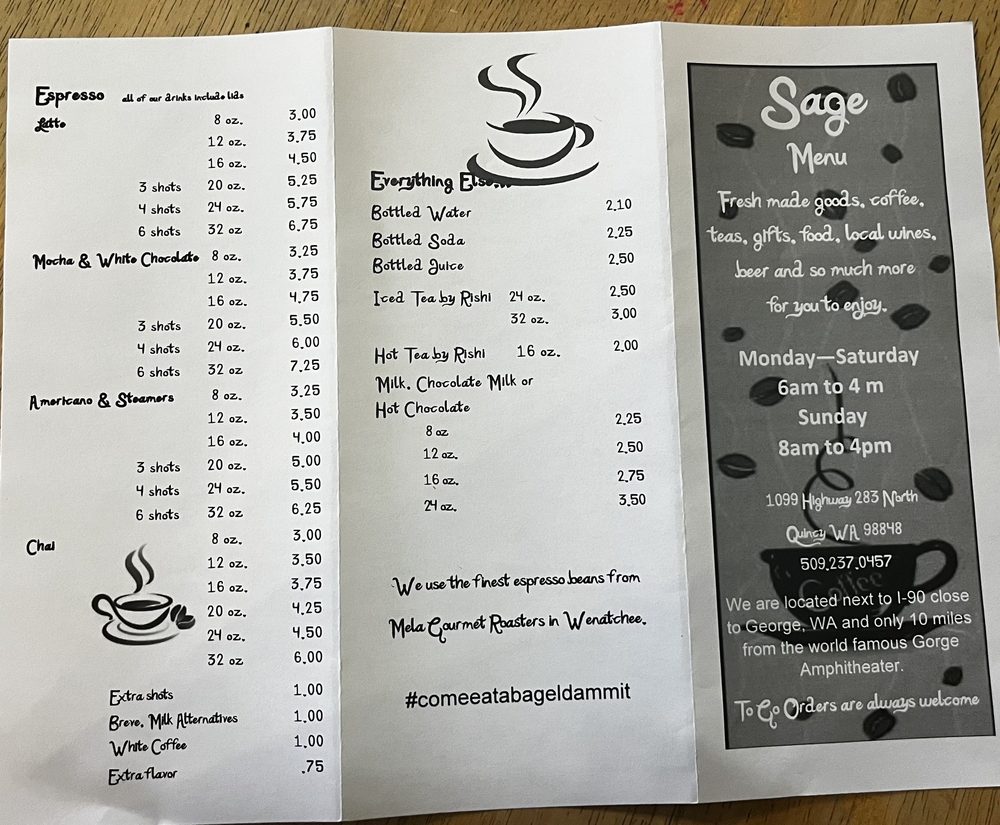 Espresso all of our drinks include lids
Latte 8 oz. 3.00
12 oz. 3.75
16 oz. 4.50
3 shots 20 oz. 5.25
4 shots 24 oz. 5.75
6 shots 32 oz 6.75
Mocha & White Chocolate 8 oz. 3.25
12 oz. 3.75
16 oz. 4.75
3 shots 20 oz. 5.50
4 shots 24 oz. 6.00
6 shots 32 oz 7.25
Americano & Steamers 8 oz. 3.25
12 oz. 3.50
16 oz. 4.00
3 shots 20 oz. 5.00
4 shots 24 oz. 5.50
6 shots 32 oz 6.25
Chai 8 oz. 3.00
12 oz. 3.50
16 oz. 3.75
20 oz. 4.25
24 oz. 4.50
32 oz 6.00
Extra shots 1.00
Breve, Milk Alternatives 1.00
White Coffee 1.00
Extra flavor .75
Everything Else...
Bottled Water 2.10
Bottled Soda 2.25
Bottled Juice 2.50
Iced Tea by Rishi 24 oz. 2.50
32 oz. 3.00
Hot Tea by Rishi 16 oz. 2.00
Milk, Chocolate Milk or
Hot Chocolate
8 oz 2.25
12 oz. 2.50
16 oz. 2.75
24 oz. 3.50
We use the finest espresso beans from
Mela Gourmet Roasters in Wenatchee.
#comeeatabageldammit
Sage
Menu
Fresh made goods, coffee,
teas, gifts, food, local wines,
beer and so much more
for you to enjoy.
Monday—Saturday
6am to 4 m
Sunday
8am to 4pm
1099 Highway 283 North
Quincy WA 98848
509.237.0457
Coffee
We are located next to I-90 close
to George, WA and only 10 miles
from the world famous Gorge
Amphitheater.
To Go Orders are always welcome